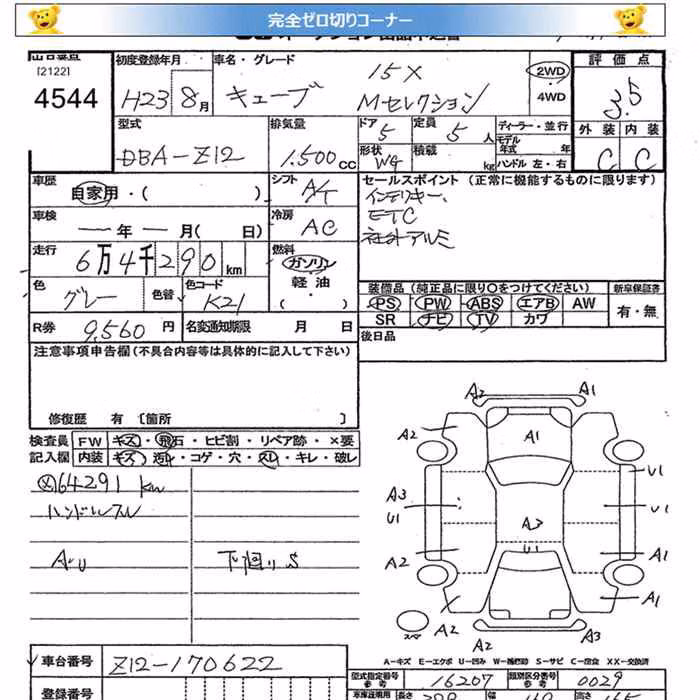 完全ゼロ切りコーナー
[2122]
4544
初度登録年月
H23 8月
車名・グレード
キューブ
15X
Mセレクション
2WD
・
4WD
評価点
3.5
外装 内装
C C
型式
DBA-Z12
排気量
1.500cc
ドア
5
定員
5人
ディーラー・並行
モデル
年式 年
形状
W4
積載
kg
ハンドル 左・右
車歴
自家用・( )
シフト
A/T
セールスポイント (正常に機能するものに限ります)
インテリキー、
ETC
社外アルミ
車検
年 月( 日)
冷房
AC
走行
6万4千290km
燃料
ガソリン
軽油
( )
色
グレー
色替
色コード
K21
装備品 (純正品に限り○をつけてください)
新車保証書
PS PW ABS エアB AW
有・無
SR ナビ TV カワ
R券 9,560円
名変通知期限 月 日
後日品
注意事項申告欄 (不具合内容等は具体的に記入して下さい)
修復歴 有 [箇所 ]
検査員
記入欄
FW キズ・飛石・ヒビ割・リペア跡・×要
内装 キズ・汚レ・コゲ・穴・スレ・キレ・破レ
64291 km
ハンドルスレ
AU
下廻りS
A2 A1
A2 A1
U1
A3
U1
U1
A2
U1
A1
A1
A2
スペア
A2 A3
A-キズ E-エクボ U-凹み W-補修跡 S-サビ C-腐食 XX-交換済
車台番号 Z12-170622
型式指定番号
参考
16207
類別区分番号
参考
0029
登録番号
車庫証明用
参考
長さ 幅 高さ